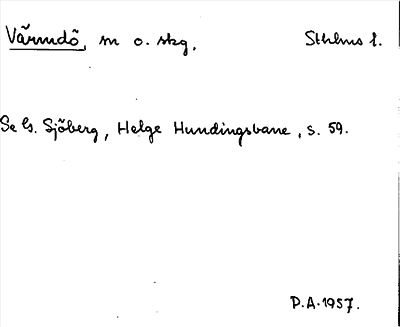 Värmdö, sn o. skg. Sthlms l.
Se G. Sjöberg, Helge Hundingsbane, s. 59.
P.A. 1957.